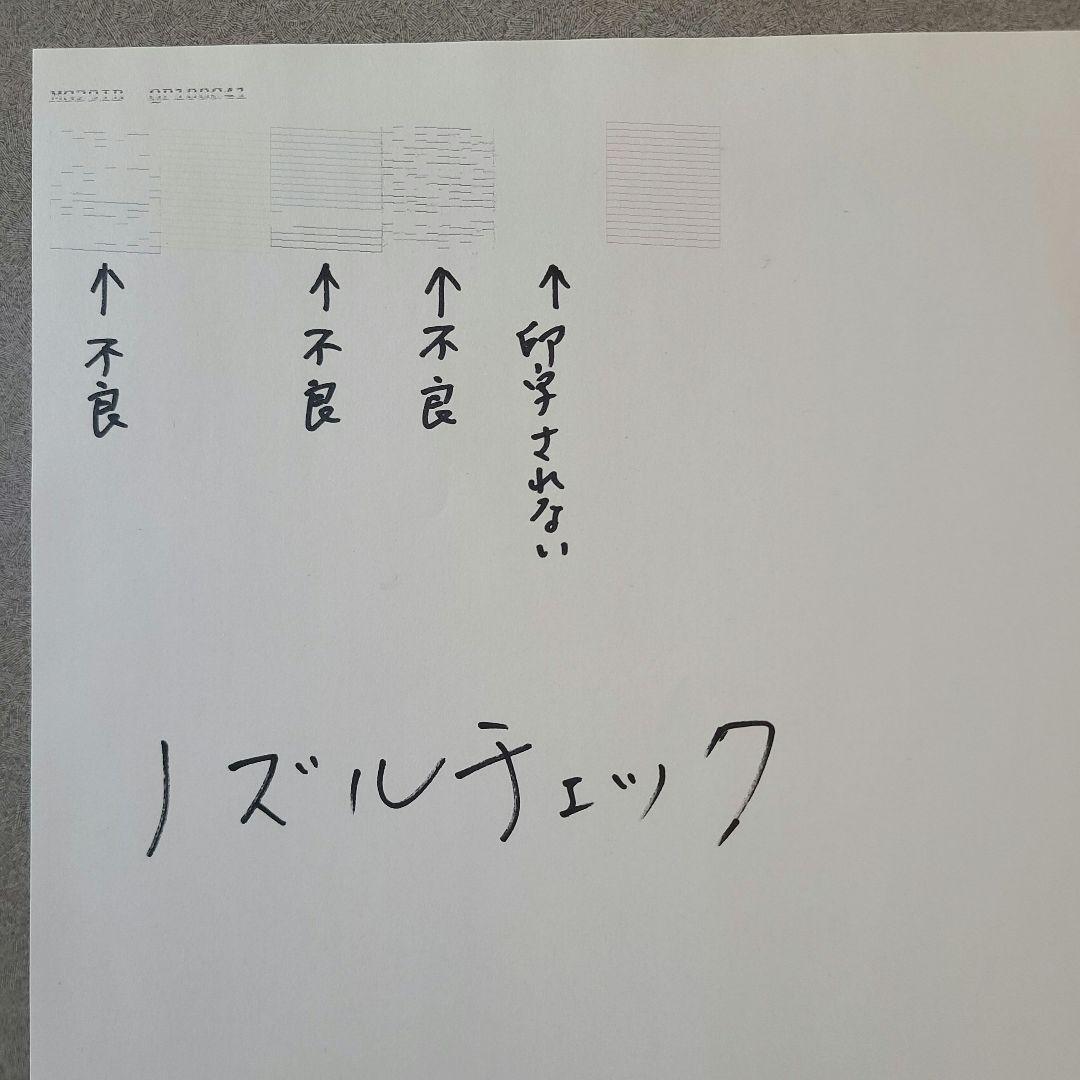 不良
不良
不良
印字されない
ノズルチェック